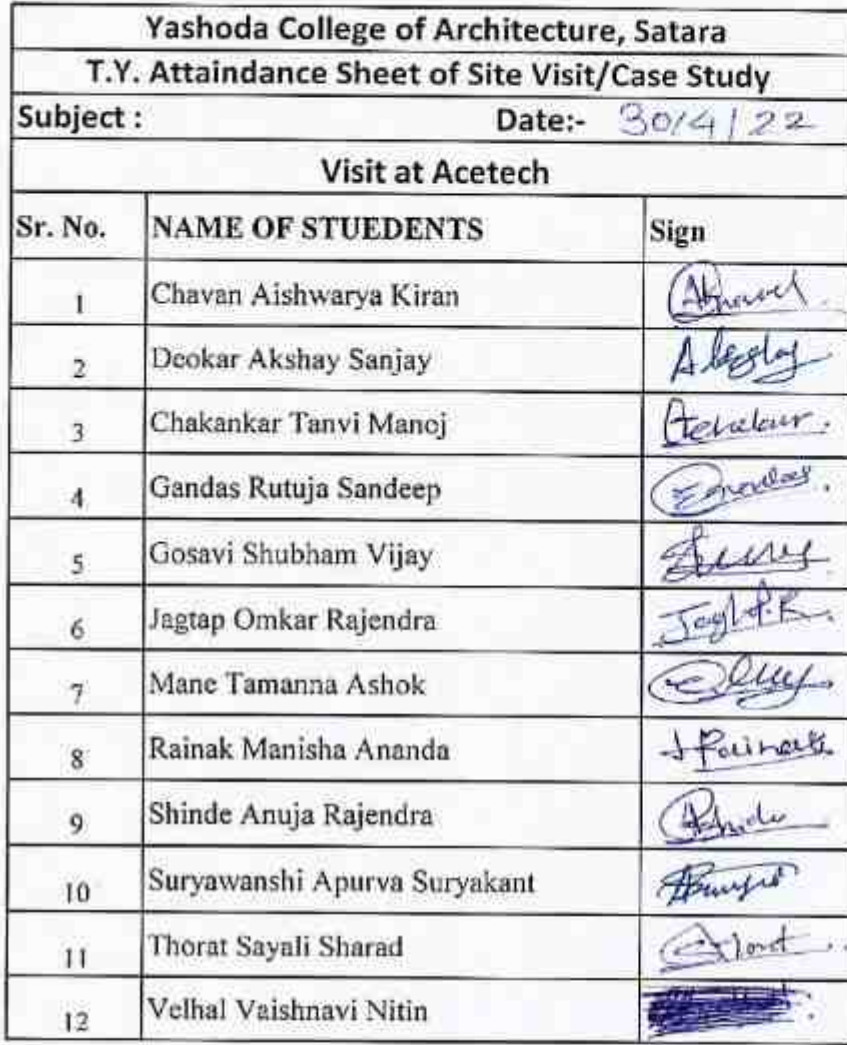 Yashoda College of Architecture, Satara
T.Y. Attaindance Sheet of Site Visit/Case Study
Subject : Date:- 30/4/22
Visit at Acetech
Sr. No. NAME OF STUEDENTS Sign
1 Chavan Aishwarya Kiran
2 Deokar Akshay Sanjay
3 Chakankar Tanvi Manoj
4 Gandas Rutuja Sandeep
5 Gosavi Shubham Vijay
6 Jagtap Omkar Rajendra
7 Mane Tamanna Ashok
8 Rainak Manisha Ananda
9 Shinde Anuja Rajendra
10 Suryawanshi Apurva Suryakant
11 Thorat Sayali Sharad
12 Velhal Vaishnavi Nitin